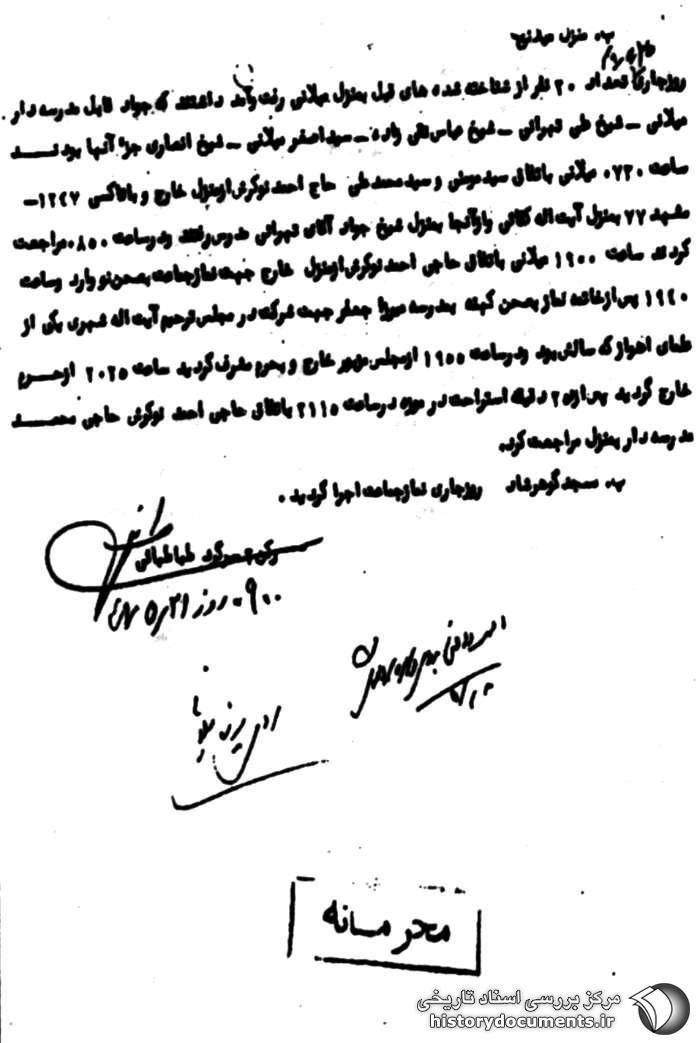 پ. منزل میلانی
روزجاری تعداد ۲۰ نفر از شناخته شده های قبل بمنزل میلانی رفت و آمد داشتند که جواد قابل مدرسه دار
میلانی – شیخ علی تهرانی – شیخ عباس تقی زاده – سید اصغر میلانی – شیخ انصاری جزء آنها بودند
ساعت ۰۷۳۰ میلانی باتفاق سید موسی و سید محمد علی حاج احمد نوکرش از منزل خارج و با تاکسی ۱۲۴۷ –
مشهد ۷۷ بمنزل آیت اله کفائی و از آنجا بمنزل شیخ جواد آقای تهرانی مدرس رفتند و در ساعت ۰۸۵۰ مراجعت
کردند ساعت ۱۹۰۰ میلانی باتفاق حاجی احمد نوکرش از منزل خارج جهت نماز جماعت بصحن نو وارد و ساعت
۱۹۴۰ پس از خاتمه نماز بصحن کهنه بمدرسه میرزا جعفر جهت شرکت در مجلس ترحیم آیت اله یکی از
علمای اهواز که سالش بود و در ساعت ۱۹۵۵ از مجلس مزبور خارج و بحرم مشرف گردید ساعت ۲۰۲۵ از حرم
خارج گردید پس از ۲۵ دقیقه استراحت در موزه در ساعت ۲۱۱۵ باتفاق حاجی احمد نوکرش حاجی محمد
مدرسه دار بمنزل مراجعت کرد.
پ. مسجد گوهرشاد روزجاری نماز جماعت اجرا گردید.
سرگرد طباطبائی
۹۰۰ روز
محرمانه
مرکز بررسی اسناد تاریخی
historydocuments.ir